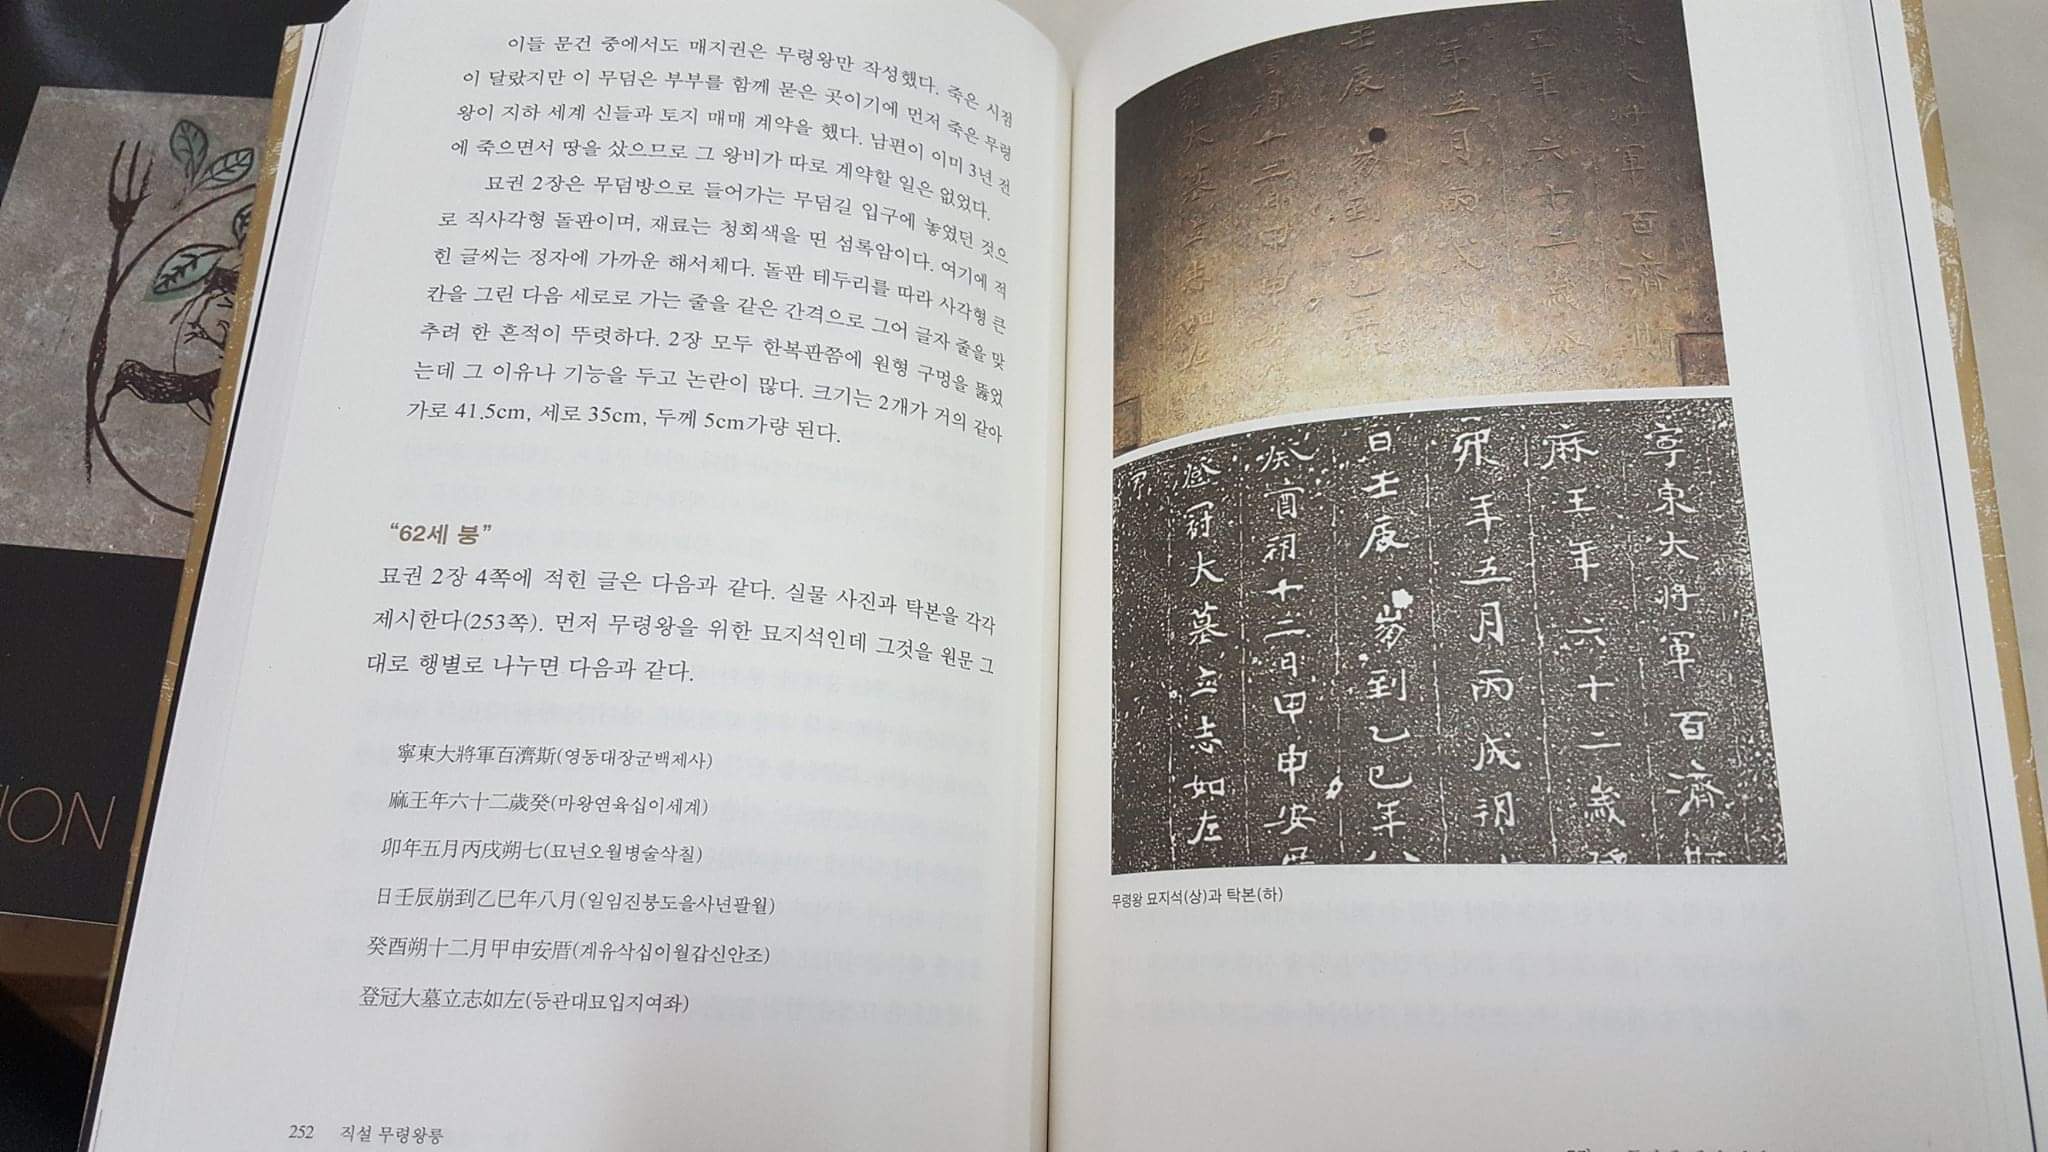 이들 문건 중에서도 매지권은 무령왕만 작성했다. 죽은 시점
이 달랐지만 이 무덤은 부부를 함께 묻은 곳이기에 먼저 죽은 무령
왕이 지하 세계 신들과 토지 매매 계약을 했다. 남편이 이미 3년 전
에 죽으면서 땅을 샀으므로 그 왕비가 따로 계약할 일은 없었다.
묘권 2장은 무덤방으로 들어가는 무덤길 입구에 놓였던 것으
로 직사각형 돌판이며, 재료는 청회색을 띤 섬록암이다. 여기에 적
힌 글씨는 정자에 가까운 해서체다. 돌판 테두리를 따라 사각형 큰
칸을 그린 다음 세로로 가는 줄을 같은 간격으로 그어 글자 줄을 맞
추려 한 흔적이 뚜렷하다. 2장 모두 한복판쯤에 원형 구멍을 뚫었
는데 그 이유나 기능을 두고 논란이 많다. 크기는 2개가 거의 같아
가로 41.5cm, 세로 35cm, 두께 5cm가량 된다.
“62세 붕”
묘권 2장 4쪽에 적힌 글은 다음과 같다. 실물 사진과 탁본을 각각
제시한다(253쪽). 먼저 무령왕을 위한 묘지석인데 그것을 원문 그
대로 행별로 나누면 다음과 같다.
寧東大將軍百濟斯(영동대장군백제사)
麻王年六十二歲癸(마왕연육십이세계)
卯年五月丙戌朔七(묘년오월병술삭칠)
日壬辰崩到乙巳年八月(일임진붕도을사년팔월)
癸酉朔十二月甲申安厝(계유삭십이월갑신안조)
登冠大墓立志如左(등관대묘입지여좌)
252 직설 무령왕릉
東大將軍百濟斯
王年六十二歲
年五月丙戌
壬辰 崩到乙巳年
十二日甲申安
冠大墓立志如左
寧東大將軍百濟斯
麻王年六十二歲
卯年五月丙戌朔
日壬辰 崩到乙巳年八
癸酉朔十二日甲申安厝
登冠大墓立志如左
무령왕 묘지석(상)과 탁본(하)
TION